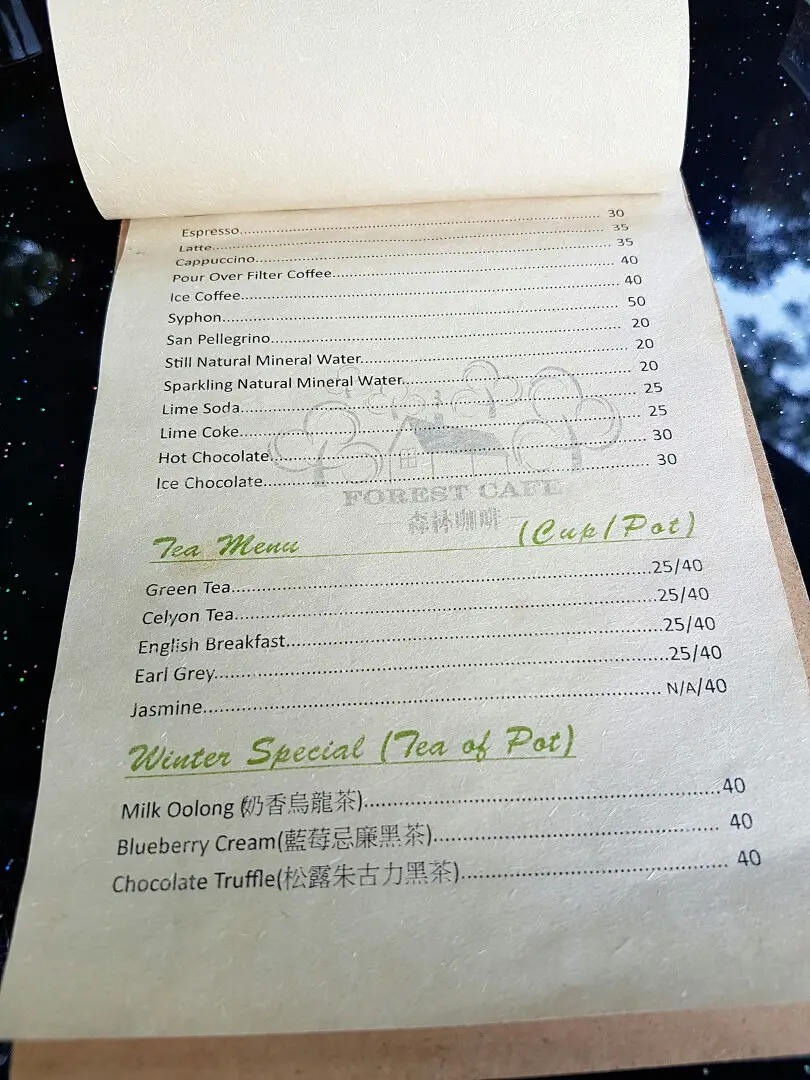 Espresso........ 30
Latte........ 35
Cappuccino........ 35
Pour Over Filter Coffee........ 40
Ice Coffee........ 40
Syphon........ 50
San Pellegrino........ 20
Still Natural Mineral Water........ 20
Sparkling Natural Mineral Water........ 20
Lime Soda........ 25
Lime Coke........ 25
Hot Chocolate........ 30
Ice Chocolate........ 30
FOREST CAFE
森林咖啡
Tea Menu (Cup/Pot)
Green Tea........25/40
Celyon Tea........25/40
English Breakfast........25/40
Earl Grey........25/40
Jasmine........ N/A/40
Winter Special (Tea of Pot)
Milk Oolong (奶香烏龍茶)........40
Blueberry Cream(藍莓忌廉黑茶)........ 40
Chocolate Truffle(松露朱古力黑茶)........ 40